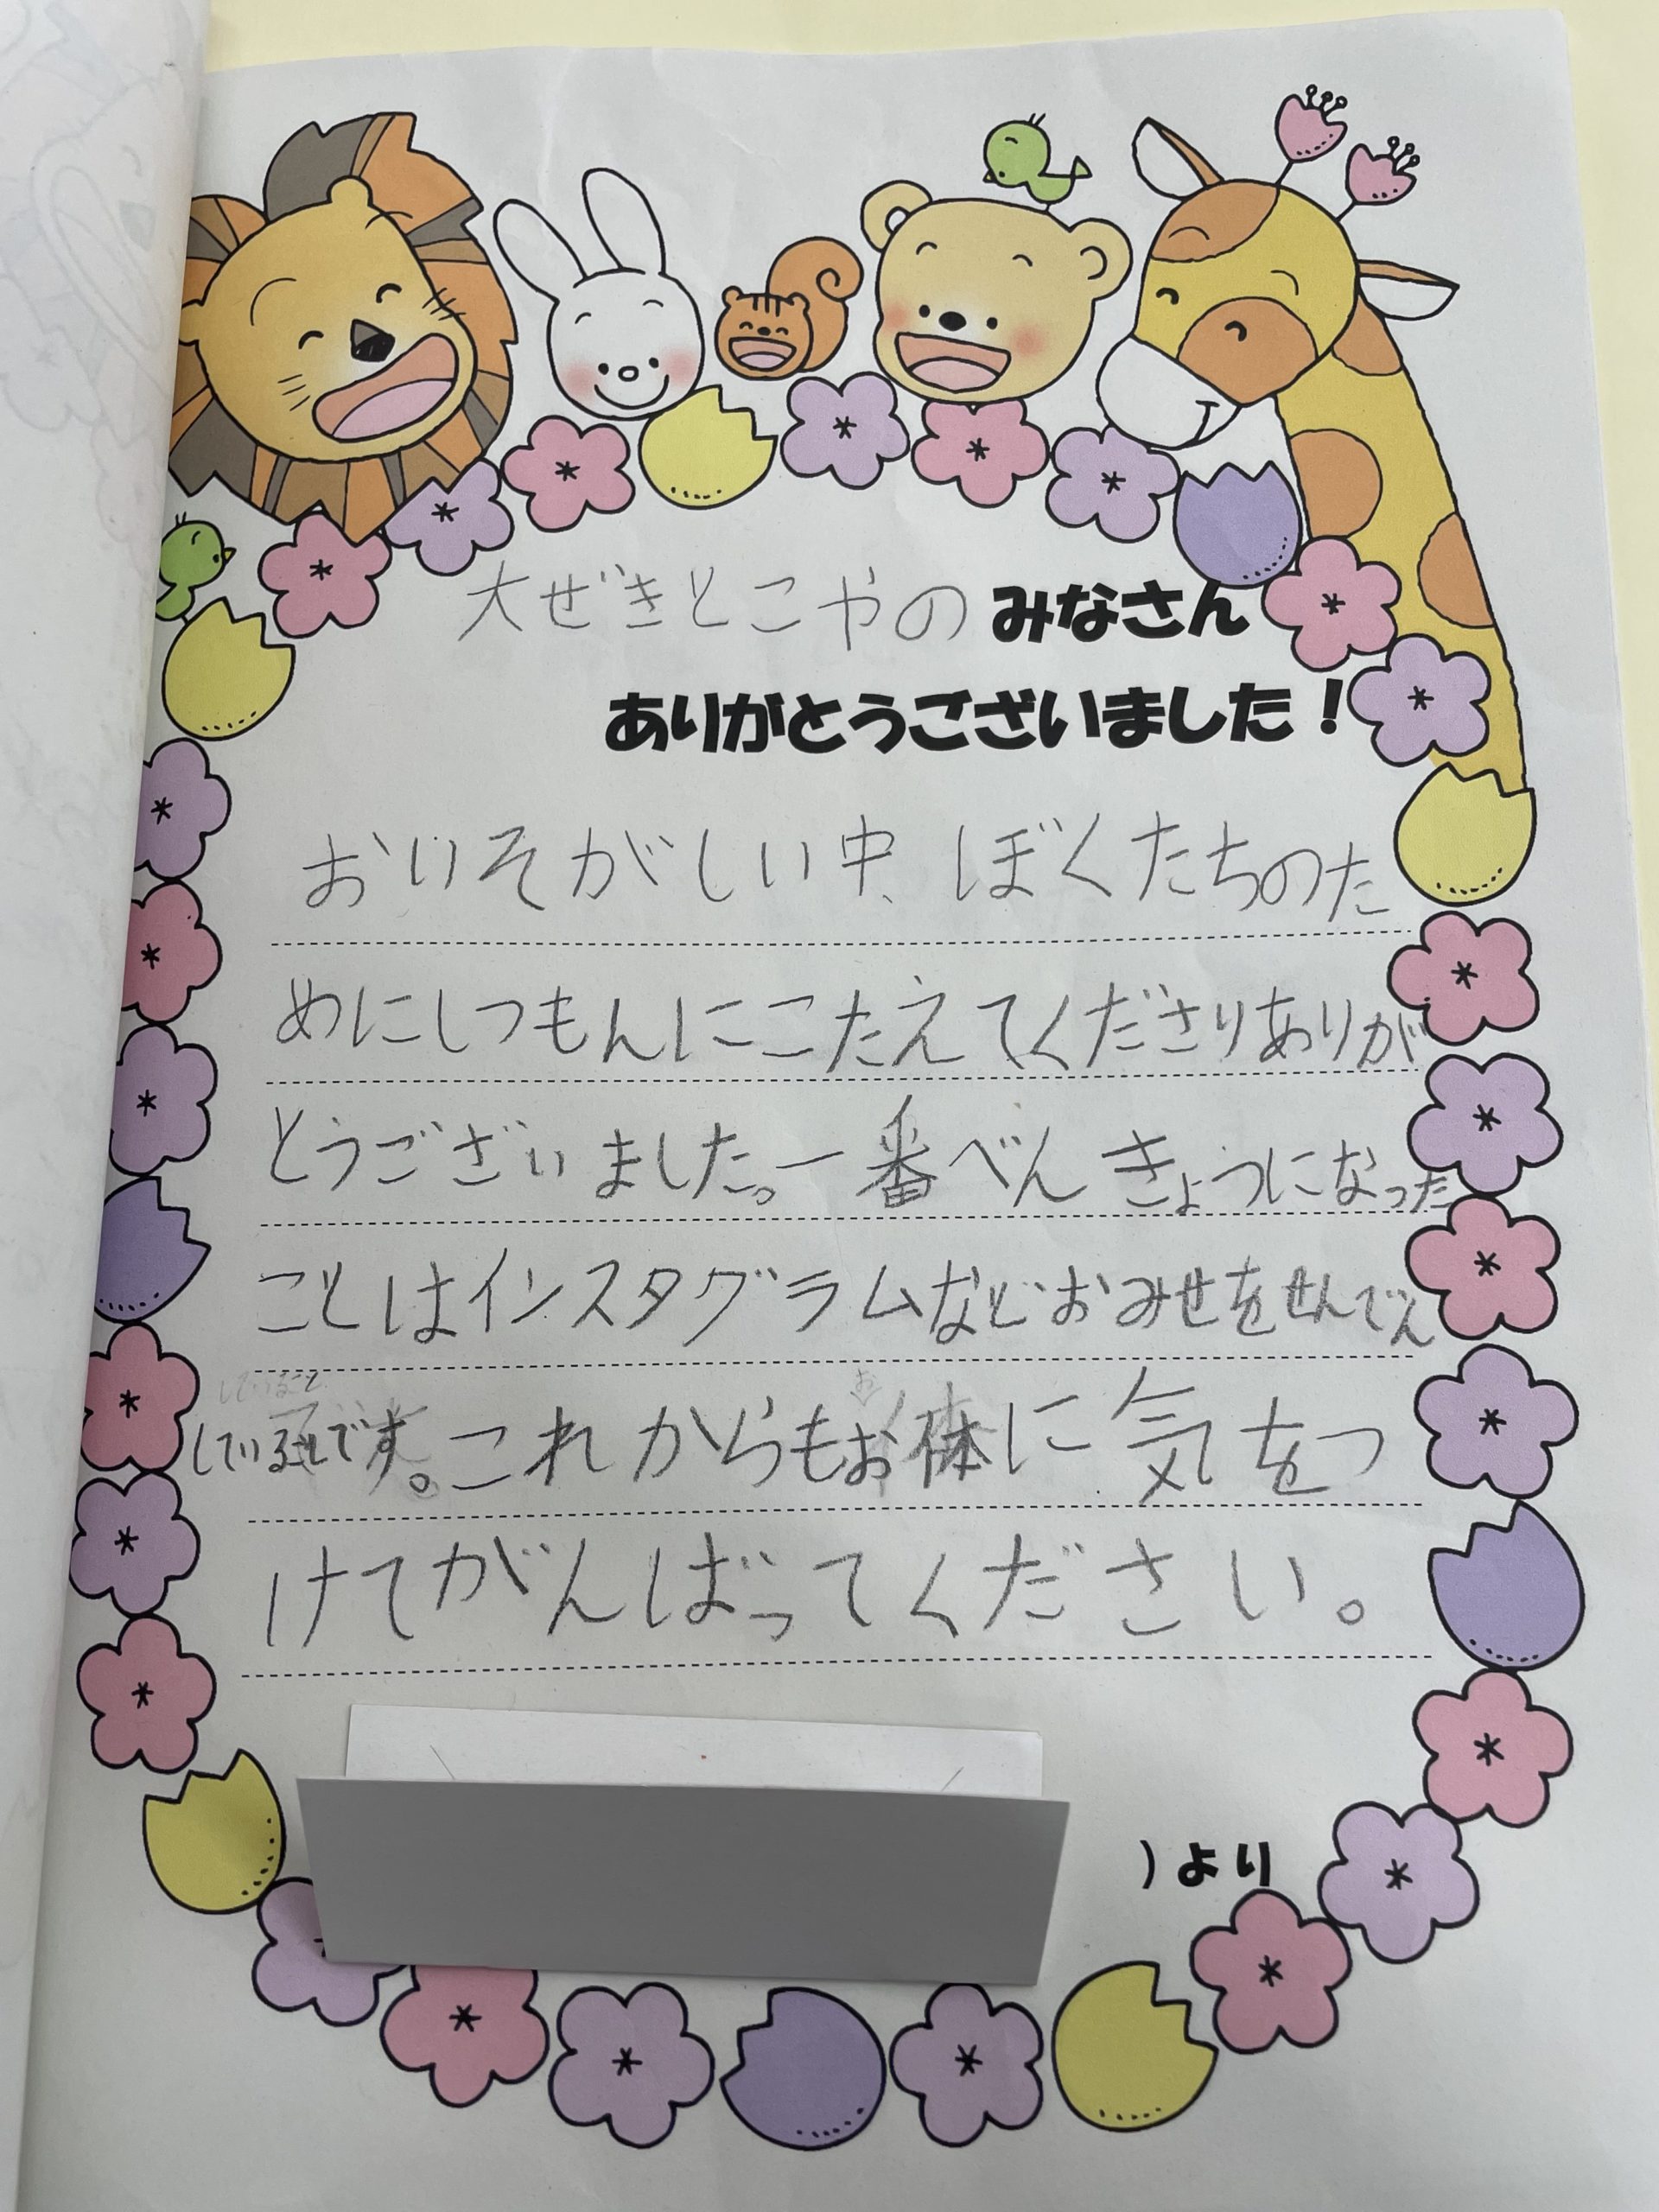 大ぜきとこやの みなさん
ありがとうございました！
おいそがしい中、ぼくたちのた
めにしつもんにこたえてくださりありが
とうございました。一番べんきょうになった
ことはインスタグラムなどおみせをせんでん
していることです。これからもお体に気をつ
けてがんばってください。
）より